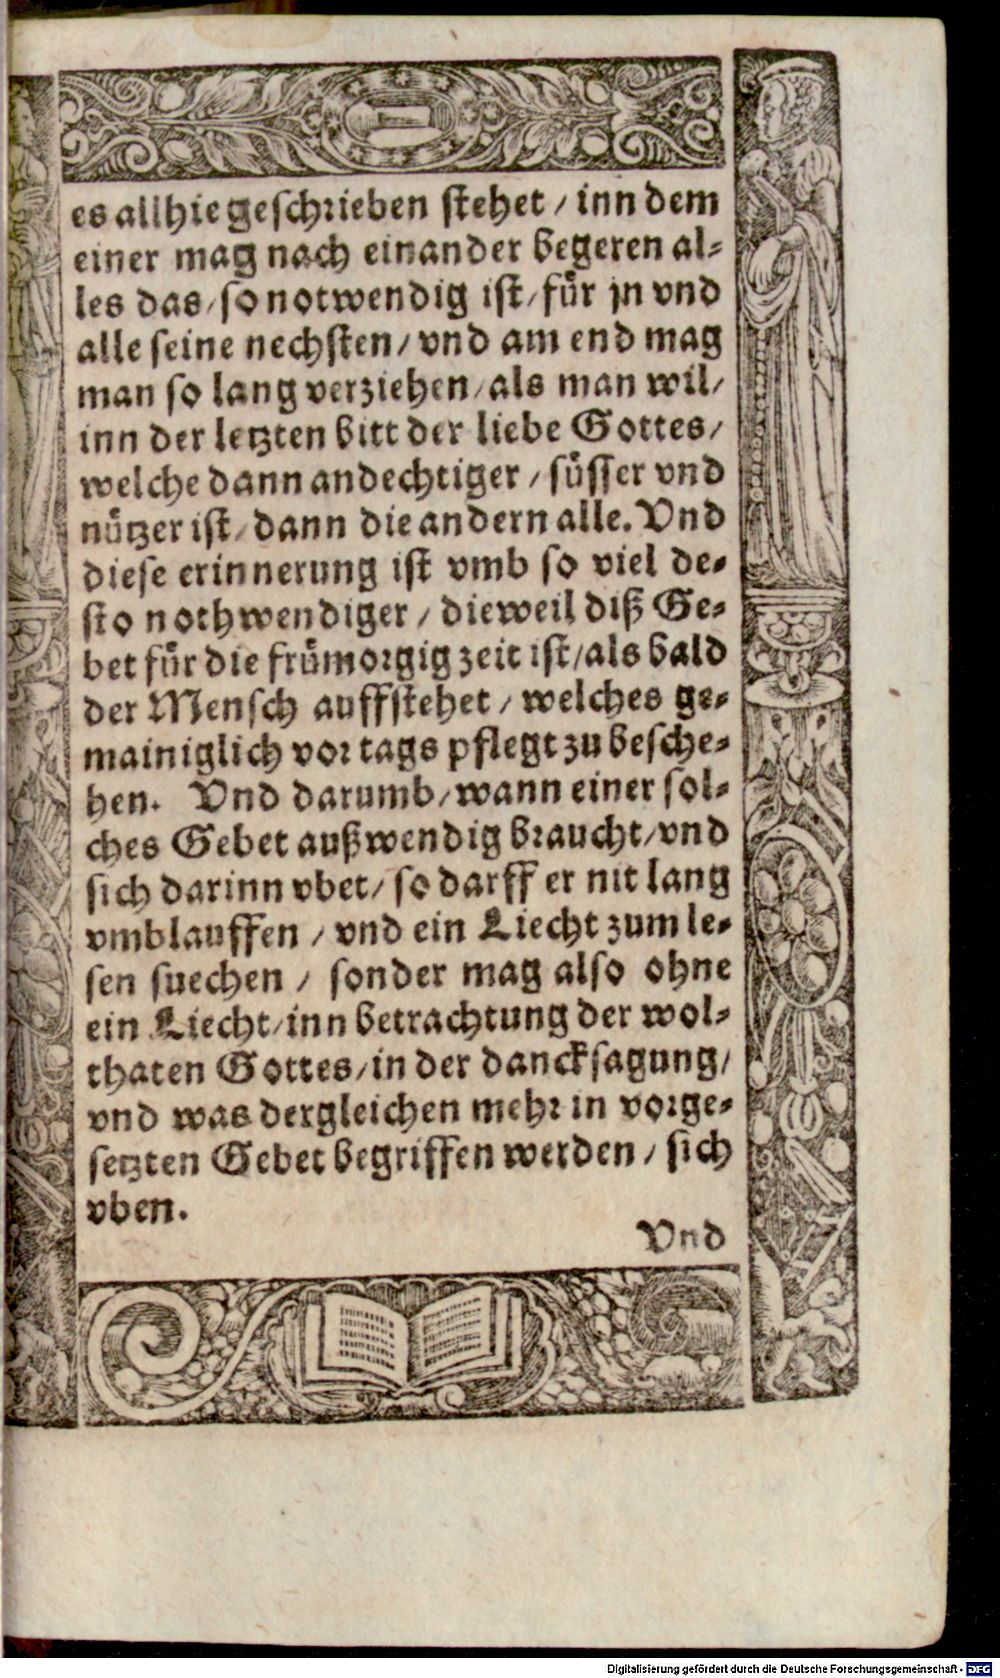 es allhie geschrieben stehet / inn dem
einer mag nach einander begeren al⸗
les das / so notwendig ist / für jn vnd
alle seine nechsten / vnd am end mag
man so lang verziehen / als man wil /
inn der letzten bitt der liebe Gottes /
welche dann andechtiger / süsser vnd
nützer ist / dann die andern alle. Vnd
diese erinnerung ist vmb so viel de⸗
sto nothwendiger / dieweil diß Ge⸗
bet für die frümorgig zeit ist / als bald
der Mensch auffstehet / welches ge⸗
mainiglich vor tags pflegt zu besche⸗
hen. Vnd darumb / wann einer sol⸗
ches Gebet außwendig braucht / vnd
sich darinn vbet / so darff er nit lang
vmblauffen / vnd ein Liecht zum le⸗
sen suechen / sonder mag also ohne
ein Liecht / inn betrachtung der wol⸗
thaten Gottes / in der dancksagung /
vnd was dergleichen mehr in vorge⸗
setzten Gebet begriffen werden / sich
vben.
Vnd
Digitalisierung gefördert durch die Deutsche Forschungsgemeinschaft - DFG